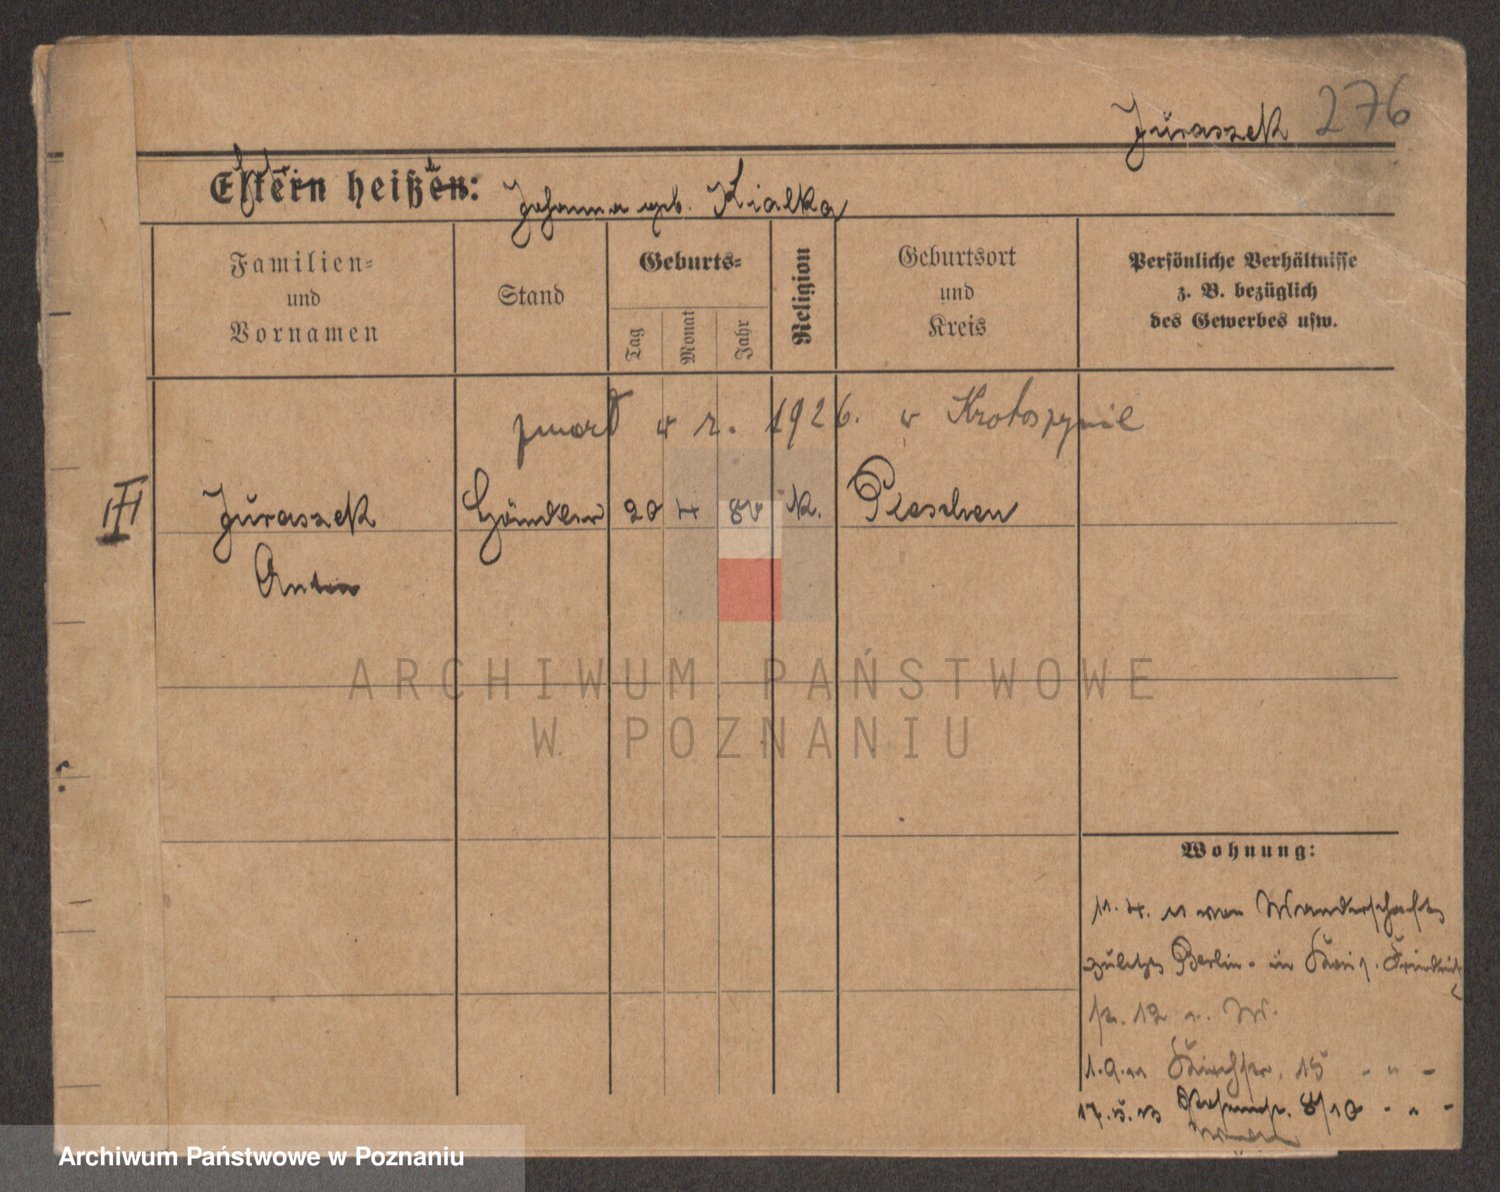 Juraszek 276
Eltern heißen: Johanna geb. Kialka
Familien-
und
Vornamen
Stand
Geburts-
Tag
Monat
Jahr
Religion
Geburtsort
und
Kreis
Persönliche Verhältnisse
z. B. bezüglich
des Gewerbes usw.
zmarł w r. 1926. w Krotoszynie
III
Juraszek Händler 20 4 80 K. Pleschen
Anton
ARCHIWUM PAŃSTWOWE
W POZNANIU
Wohnung:
11. 4. 11 von Wanderschaft
zuletzt Berlin
12 W.
1.9.11 15 - " -
17. 5. 13 8/10 - " -
Archiwum Państwowe w Poznaniu